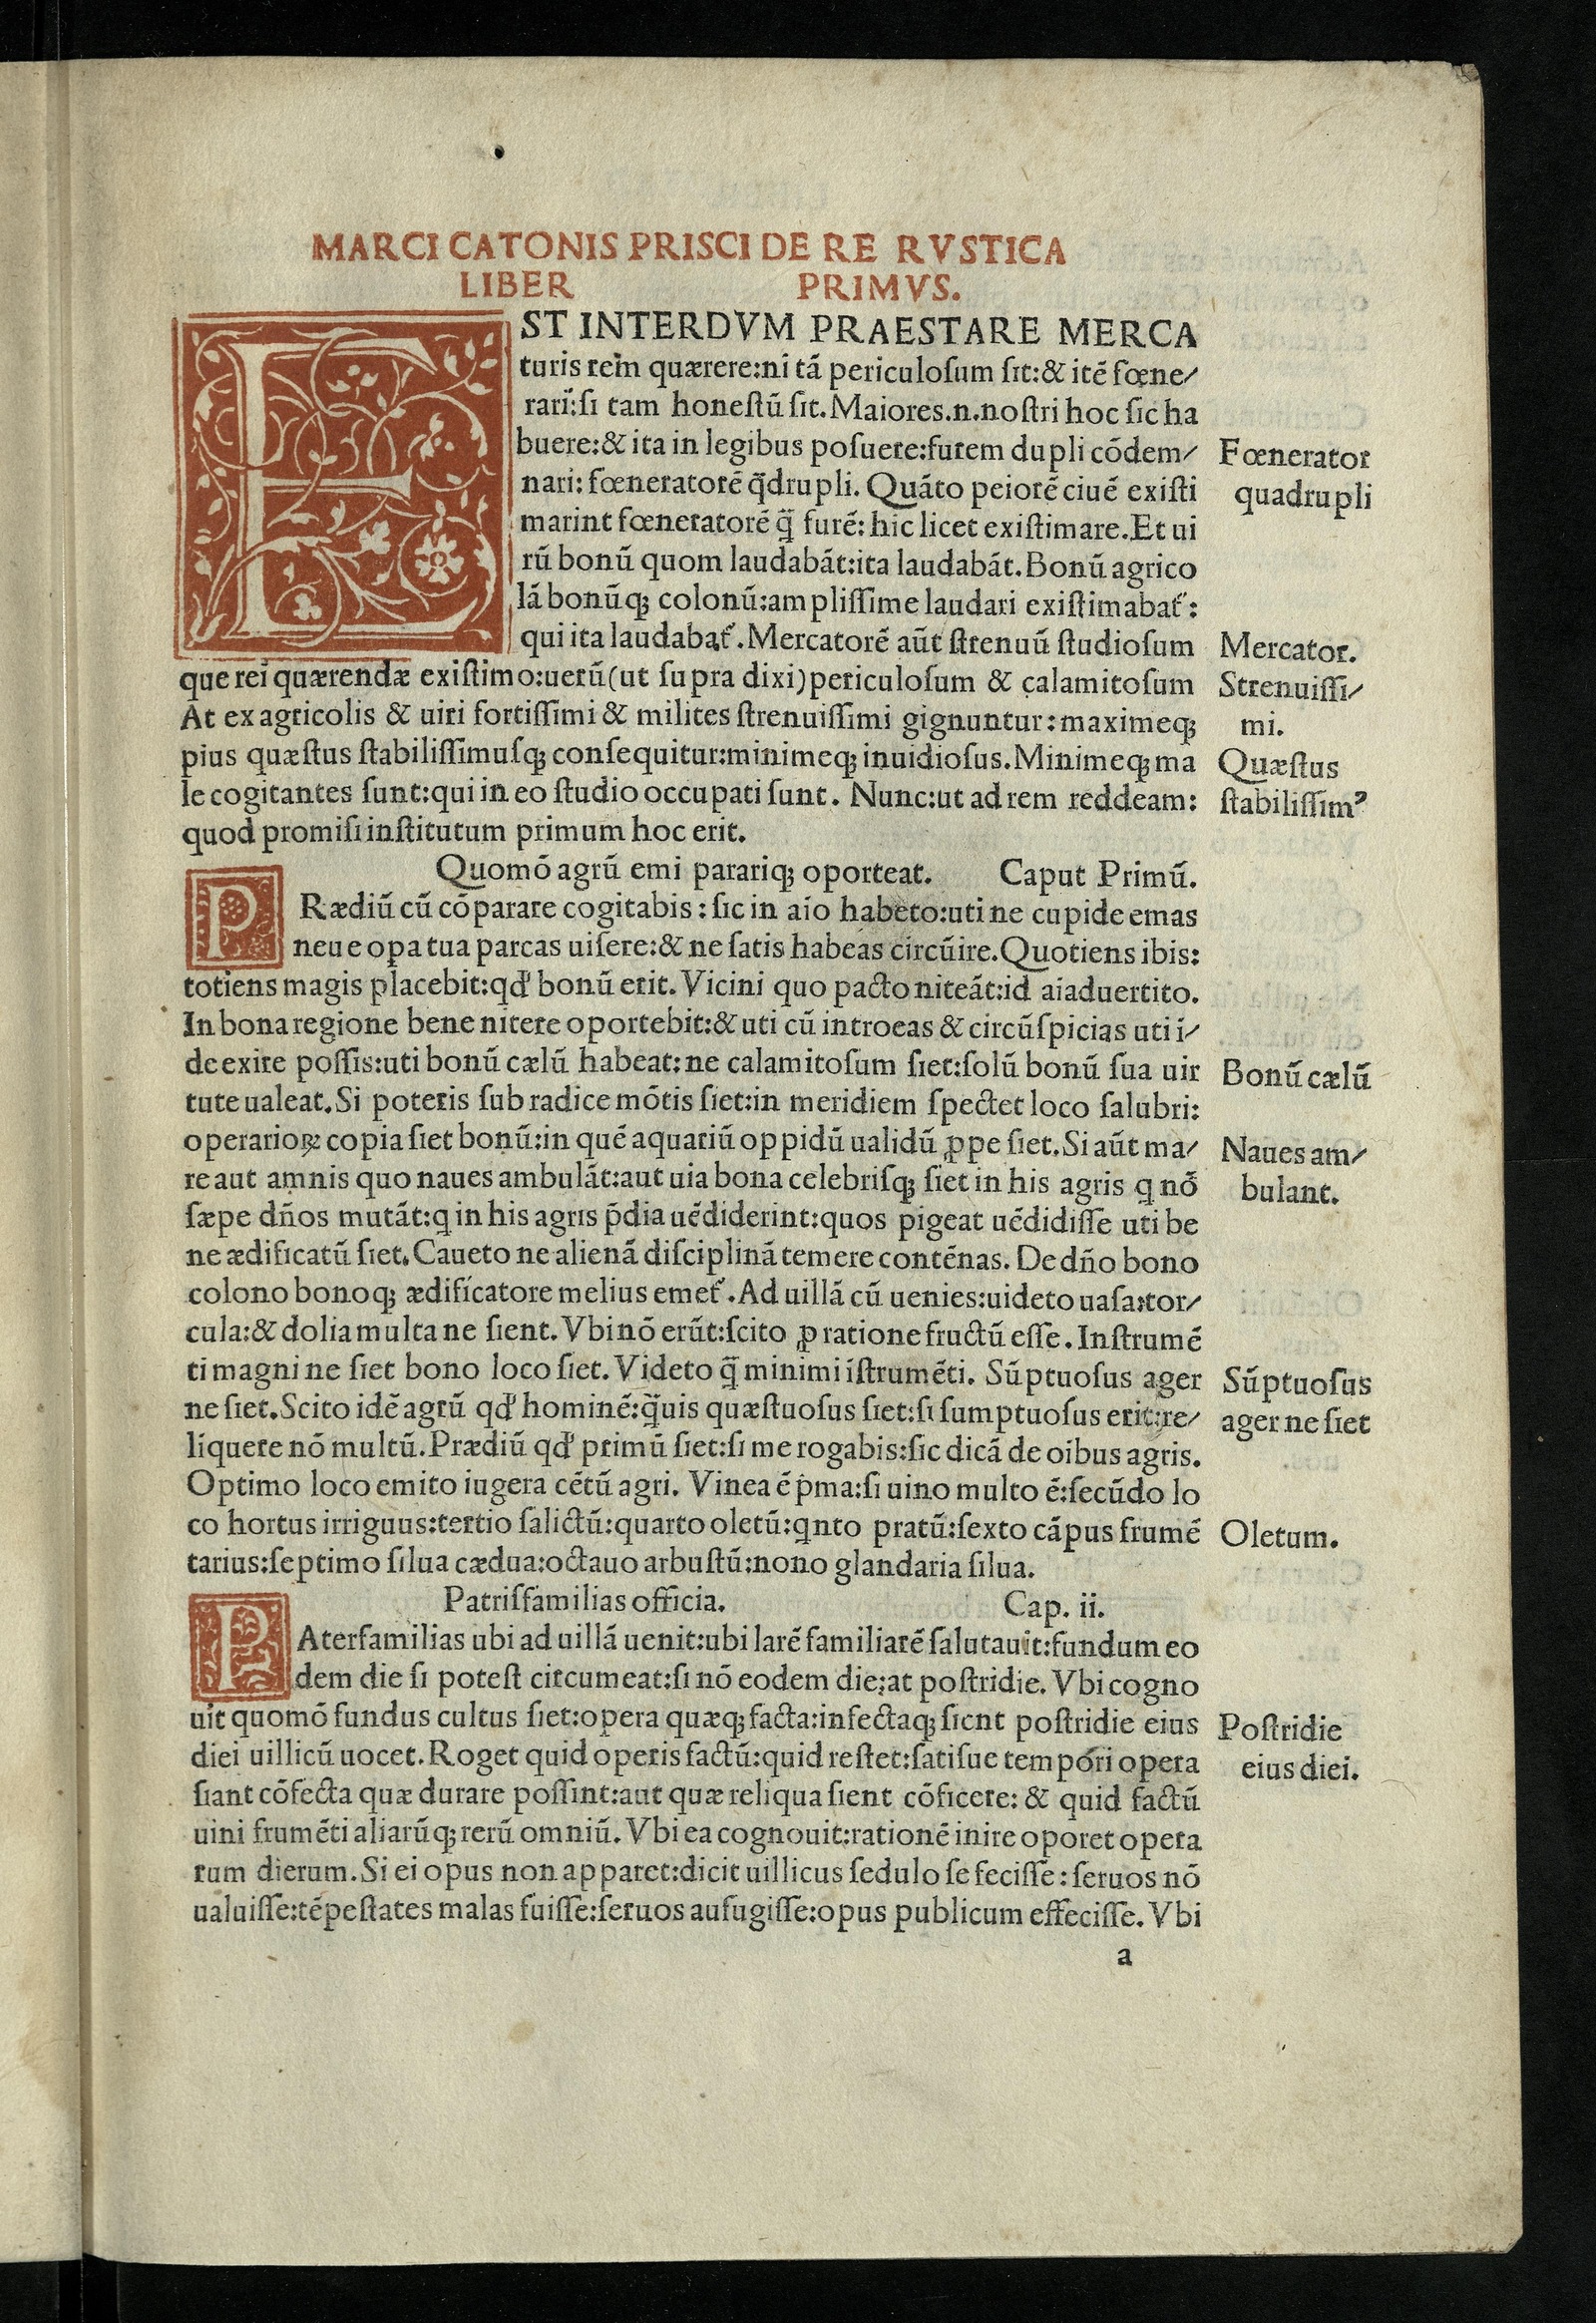 MARCI CATONIS PRISCI DE RE RVSTICA
LIBER PRIMVS.
EST INTERDVM PRAESTARE MERCA
turis rem quærere:ni tā periculoſum ſit:& itē fœne/
rari:ſi tam honeſtū ſit. Maiores.n.noſtri hoc ſic ha
buere:& ita in legibus poſuere:furem dupli cōdem/
nari: fœneratorē q̄drupli. Quāto peiorē ciuē exiſti
marint fœneratorē q̄ furē: hic licet exiſtimare. Et ui
rū bonū quom laudabāt:ita laudabāt. Bonū agrico
lā bonūq; colonū:ampliſſime laudari exiſtimabat᷑:
qui ita laudabat᷑. Mercatorē aūt ſtrenuū ſtudioſum
que rei quærendæ exiſtimo:uerū(ut ſupra dixi)periculoſum & calamitoſum
At ex agricolis & uiri fortiſſimi & milites ſtrenuiſſimi gignuntur: maximeq;
pius quæſtus ſtabiliſſimuſq; conſequitur:minimeq; inuidioſus. Minimeq; ma
le cogitantes ſunt:qui in eo ſtudio occupati ſunt. Nunc:ut ad rem reddeam:
quod promiſi inſtitutum primum hoc erit.
Fœnerator
quadrupli
Mercator.
Strenuiſſi/
mi.
Quæſtus
ſtabiliſſimꝰ
Quomō agrū emi parariq; oporteat. Caput Primū.
PRædiū cū cōparare cogitabis: ſic in aīo habeto:uti ne cupide emas
neue opa tua parcas uiſere:& ne ſatis habeas circūire. Quotiens ibis:
totiens magis placebit:qđ bonū erit. Vicini quo pacto niteāt:id aiaduertito.
In bona regione bene nitere oportebit:& uti cū introeas & circūſpicias uti ī/
de exire poſſis:uti bonū cælū habeat: ne calamitoſum ſiet:ſolū bonū ſua uir
tute ualeat. Si poteris ſub radice mōtis ſiet:in meridiem ſpectet loco ſalubri:
operarioꝝ copia ſiet bonū:in quē aquariū oppidū ualidū ꝓpe ſiet. Si aūt ma/
re aut amnis quo naues ambulāt:aut uia bona celebriſq; ſiet in his agris q nō
ſæpe dn̄os mutāt:q in his agris p̄dia uēdiderint:quos pigeat uēdidiſſe uti be
ne ædificatū ſiet. Caueto ne alienā diſciplinā temere contēnas. De dn̄o bono
colono bonoq; ædificatore melius emet᷑. Ad uillā cū uenies:uideto uaſa:tor/
cula:& dolia multa ne ſient. Vbi nō erūt:ſcito ꝓ ratione fructū eſſe. Inſtrumē
ti magni ne ſiet bono loco ſiet. Videto q̄ minimi īſtrumēti. Sūptuoſus ager
ne ſiet. Scito idē agrū qđ hominē:q̄uis quæſtuoſus ſiet:ſi ſumptuoſus erit:re/
liquere nō multū. Prædiū qđ primū ſiet:ſi me rogabis:ſic dicā de oibus agris.
Optimo loco emito iugera cētū agri. Vinea ē p̄ma:ſi uino multo ē:ſecūdo lo
co hortus irriguus:tertio ſalictū:quarto oletū:qnto pratū:ſexto cāpus frumē
tarius:ſeptimo ſilua cædua:octauo arbuſtū:nono glandaria ſilua.
Bonū cælū
Naues am/
bulant.
Sūptuoſus
ager ne ſiet
Oletum.
Patriſfamilias officia. Cap. ii.
PAterfamilias ubi ad uillā uenit:ubi larē familiarē ſalutauit:fundum eo
dem die ſi poteſt circumeat:ſi nō eodem die:at poſtridie. Vbi cogno
uit quomō fundus cultus ſiet:opera quæq; facta:infectaq; ſient poſtridie eius
diei uillicū uocet. Roget quid operis factū:quid reſtet:ſatiſue tempóri opera
ſiant cōfecta quæ durare poſſint:aut quæ reliqua ſient cōficere: & quid factū
uini frumēti aliarūq; rerū omniū. Vbi ea cognouit:rationē inire oporet opera
rum dierum. Si ei opus non apparet:dicit uillicus ſedulo ſe feciſſe: ſeruos nō
ualuiſſe:tēpeſtates malas fuiſſe:ſeruos aufugiſſe:opus publicum effeciſſe. Vbi
Poſtridie
eius diei.
a